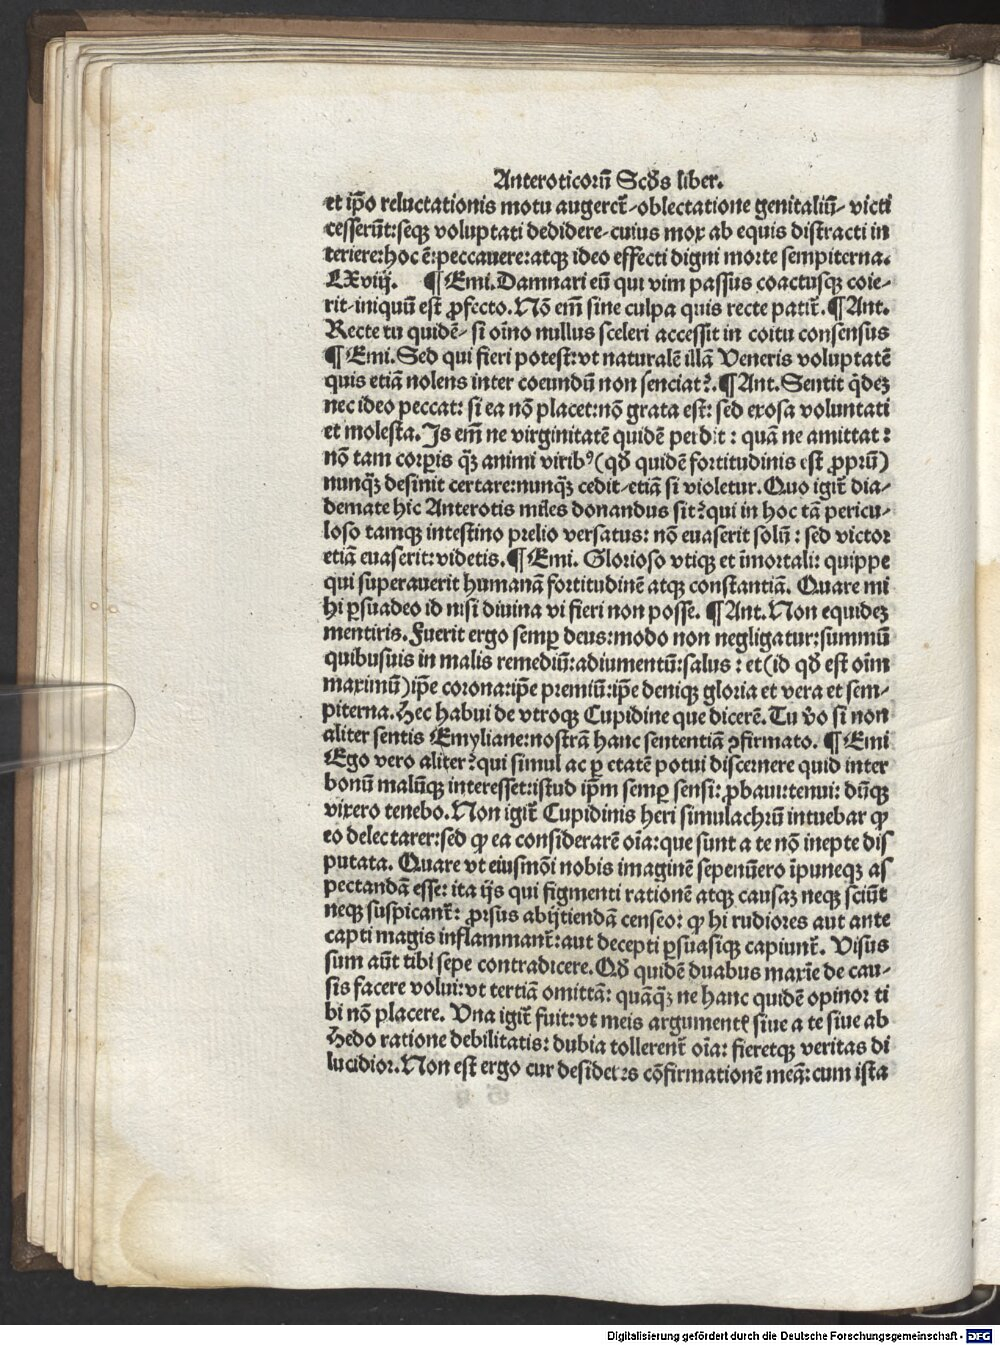 Anteroticoꝛū Scd̄s liber.
et ip̄o reluctationis motu augerct̄-oblectatione genitaliū- victi
cesserūt:seqꝫ voluptati dedidere-cuius mox ab equis distracti in
teriere:hoc ē:peccauere:atqꝫ ideo effecti digni moꝛte sempiterna.
LXviij. ¶Emi.Damnari eū qui vim passus coactusqꝫ coie-
rit-iniquū est ꝓfecto.Nō em̄ sine culpa quis recte patit̄.¶Ant.
Recte tu quidē- si oīno nullus sceleri accessit in coitu consensus
¶Emi.Sed qui fieri potest:vt naturalē illā Veneris voluptatē
quis etiā nolens inter coeundū non senciat?.¶Ant.Sentit q̇deꝫ
nec ideo peccat: si ea nō placet:nō grata est: sed exosa voluntati
et molesta.Js em̄ ne virginitatē quidē perdit : quā ne amittat :
nō tam coꝛꝑis q̄ꝫ animi virib⁹(qd̄ quidē foꝛtitudinis est ꝓpꝛiū)
nunq̄ꝫ desinit certare:nunq̄ꝫ cedit-etiā si violetur.Quo igit̄ dia-
demate hic Anterotis miles donandus sit?qui in hoc tā pericu-
loso tamqꝫ intestino pꝛelio versatus: nō euaserit solū : sed victoꝛ
etiā euaserit:videtis.¶Emi. Gloꝛioso vtiqꝫ et īmoꝛtali: quippe
qui superauerit humanā foꝛtitudinē atqꝫ constantiā. Quare mi
hi ꝑsuadeo id nisi diuina vi fieri non posse. ¶Ant.Non equideꝫ
mentiris.Fuerit ergo semꝑ deus:modo non negligatur:summū
quibusuis in malis remediū:adiumentū:salus : et(id qd̄ est oīm
maximū)ip̄e coꝛona:ip̄e pꝛemiū:ip̄e deniqꝫ gloꝛia et vera et sem-
piterna.Hec habui de vtroqꝫ Cupidine que dicerē.Tu v̊o si non
aliter sentis Emyliane:nostrā hanc sententiā ꝯfirmato. ¶Emi
Ego vero aliter?qui simul ac ꝑ etatē potui discernere quid inter
bonū malūqꝫ interesset:istud ip̄m semꝑ sensi: ꝓbaui:tenui: dūqꝫ
vixero tenebo.Non igit̄ Cupidinis heri simulachꝛū intuebar ꝙ
eo delectarer:sed ꝙ ea considerarē oīa:que sunt a te nō inepte dis
putata. Quare vt eiusmōi nobis imaginē sepenūero īpuneqꝫ as
pectandā esse: ita ijs qui figmenti rationē atqꝫ causaꝫ neqꝫ sciūt
neqꝫ suspicant̄: pꝛoꝛsus abijtiendā censeo: ꝙ hi rudioꝛes aut ante
capti magis inflammant̄:aut decepti ꝑsuasiqꝫ capiunt̄. Visus
sum aūt tibi sepe contradicere.Qd̄ quidē duabus maxīe de cau-
sis facere volui:vt tertiā omittā: quāq̄ꝫ ne hanc quidē opinoꝛ ti
bi nō placere. Vna igit̄ fuit:vt meis argumentꝭ siue a te siue ab
Hedo ratione debilitatis: dubia tollerent̄ oīa: fieretqꝫ veritas di
lucidioꝛ.Non est ergo cur desideres cōfirmationē meā:cum ista
Digitalisierung gefördert durch die Deutsche Forschungsgemeinschaft - DFG